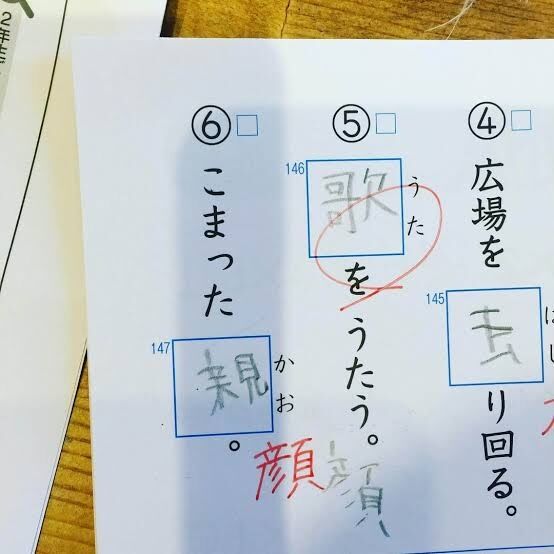 ④□
広場を
145
去
り回る。
⑤□
146
歌
うた
をうたう。
⑥□
こまった
147
親
かお
。
顔
顔